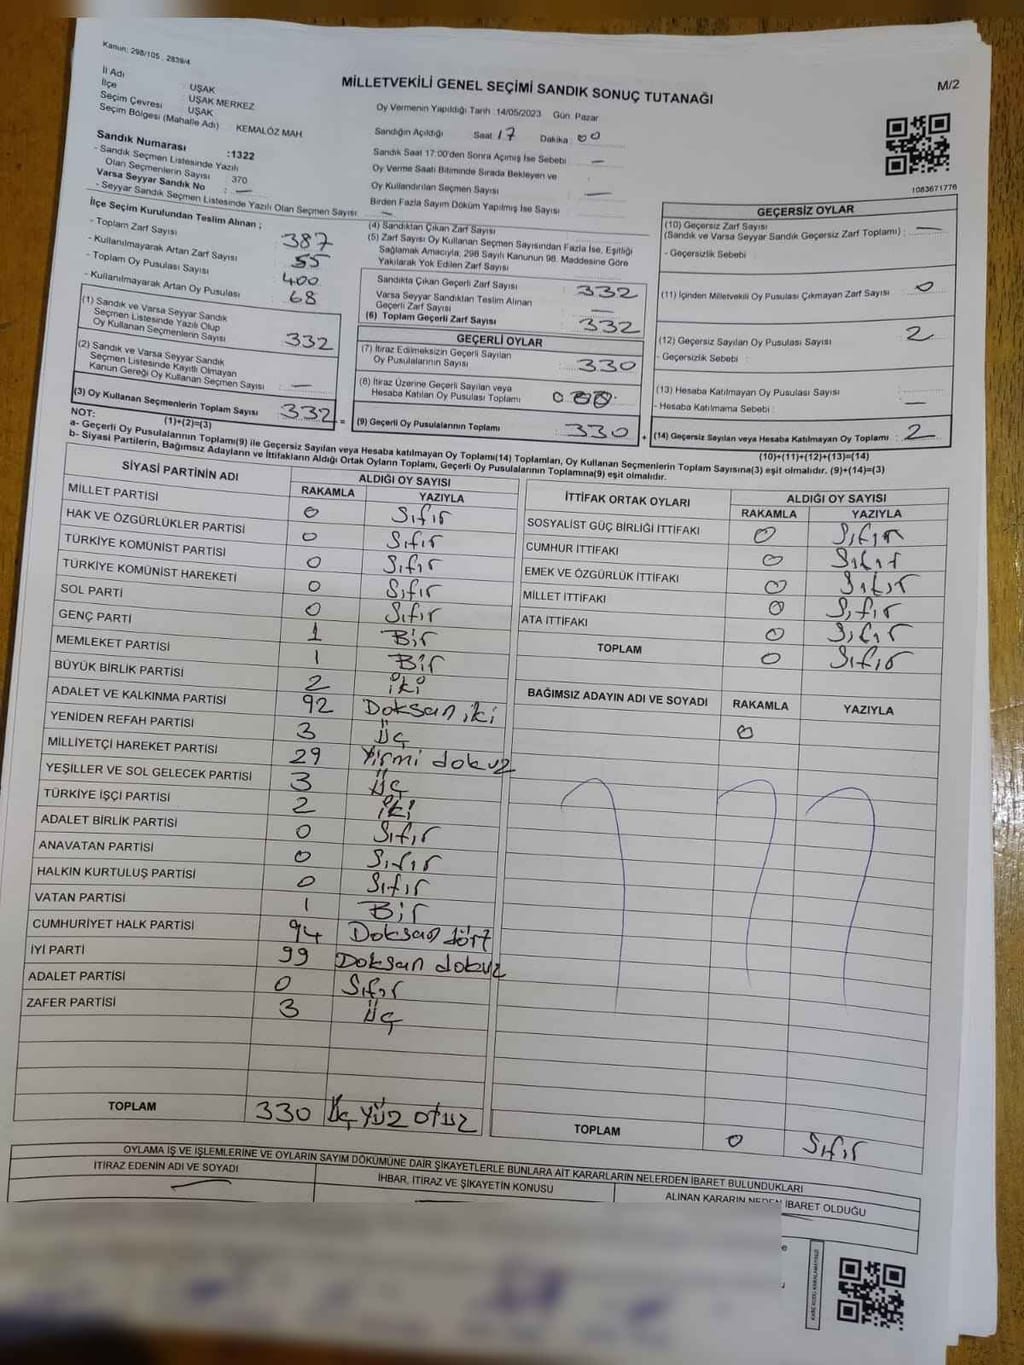 Kanun: 298/105, 2839/4
MİLLETVEKİLİ GENEL SEÇİMİ SANDIK SONUÇ TUTANAĞI
M/2
İl Adı : UŞAK
İlçe : UŞAK MERKEZ
Seçim Çevresi : UŞAK
Seçim Bölgesi (Mahalle Adı) : KEMALÖZ MAH.
Oy Vermenin Yapıldığı Tarih :14/05/2023 Gün: Pazar
Sandığın Açıldığı Saat 17 Dakika : 00
Sandık Saat 17:00'den Sonra Açımış İse Sebebi —
Oy Verme Saati Bitiminde Sırada Bekleyen ve
Oy Kullandırılan Seçmen Sayısı —
Birden Fazla Sayım Döküm Yapılmış İse Sayısı
1083671776
Sandık Numarası :1322
- Sandık Seçmen Listesinde Yazılı
Olan Seçmenlerin Sayısı : 370
Varsa Seyyar Sandık No : —
- Seyyar Sandık Seçmen Listesinde Yazılı Olan Seçmen Sayısı: —
İlçe Seçim Kurulundan Teslim Alınan ;
- Toplam Zarf Sayısı : 387
- Kullanılmayarak Artan Zarf Sayısı : 55
- Toplam Oy Pusulası Sayısı : 400
- Kullanılmayarak Artan Oy Pusulası : 68
(1) Sandık ve Varsa Seyyar Sandık
Seçmen Listesinde Yazılı Olup
Oy Kullanan Seçmenlerin Sayısı : 332
(2) Sandık ve Varsa Seyyar Sandık
Seçmen Listesinde Kayıtlı Olmayan
Kanun Gereği Oy Kullanan Seçmen Sayısı : —
(3) Oy Kullanan Seçmenlerin Toplam Sayısı : 332
(1)+(2)=(3)
(4) Sandıktan Çıkan Zarf Sayısı
(5) Zarf Sayısı Oy Kullanan Seçmen Sayısından Fazla İse, Eşitliği
Sağlamak Amacıyla, 298 Sayılı Kanunun 98. Maddesine Göre
Yakılarak Yok Edilen Zarf Sayısı
Sandıkta Çıkan Geçerli Zarf Sayısı : 332
Varsa Seyyar Sandıktan Teslim Alınan
Geçerli Zarf Sayısı : —
(6) Toplam Geçerli Zarf Sayısı : 332
GEÇERLİ OYLAR
(7) İtiraz Edilmeksizin Geçerli Sayılan
Oy Pusulalarının Sayısı : 330
(8) İtiraz Üzerine Geçerli Sayılan veya
Hesaba Katılan Oy Pusulası Toplamı :
(9) Geçerli Oy Pusulalarının Toplamı : 330
GEÇERSİZ OYLAR
(10) Geçersiz Zarf Sayısı
(Sandık ve Varsa Seyyar Sandık Geçersiz Zarf Toplamı) : —
- Geçersizlik Sebebi
(11) İçinden Milletvekili Oy Pusulası Çıkmayan Zarf Sayısı : 0
(12) Geçersiz Sayılan Oy Pusulası Sayısı : 2
- Geçersizlik Sebebi :
(13) Hesaba Katılmayan Oy Pusulası Sayısı : —
- Hesaba Katılmama Sebebi :
(14) Geçersiz Sayılan veya Hesaba Katılmayan Oy Toplamı : 2
(10)+(11)+(12)+(13)=(14)
NOT:
a- Geçerli Oy Pusulalarının Toplamı(9) ile Geçersiz Sayılan veya Hesaba katılmayan Oy Toplamı(14) Toplamları, Oy Kullanan Seçmenlerin Toplam Sayısına(3) eşit olmalıdır. (9)+(14)=(3)
b- Siyasi Partilerin, Bağımsız Adayların ve İttifakların Aldığı Ortak Oyların Toplamı, Geçerli Oy Pusulalarının Toplamına(9) eşit olmalıdır.
SİYASİ PARTİNİN ADI ALDIĞI OY SAYISI
RAKAMLA YAZIYLA
MİLLET PARTİSİ 0 Sıfır
HAK VE ÖZGÜRLÜKLER PARTİSİ 0 Sıfır
TÜRKİYE KOMÜNİST PARTİSİ 0 Sıfır
TÜRKİYE KOMÜNİST HAREKETİ 0 Sıfır
SOL PARTİ 0 Sıfır
GENÇ PARTİ 1 Bir
MEMLEKET PARTİSİ 1 Bir
BÜYÜK BİRLİK PARTİSİ 2 iki
ADALET VE KALKINMA PARTİSİ 92 Doksan iki
YENİDEN REFAH PARTİSİ 3 Üç
MİLLİYETÇİ HAREKET PARTİSİ 29 Yirmi dokuz
YEŞİLLER VE SOL GELECEK PARTİSİ 3 Üç
TÜRKİYE İŞÇİ PARTİSİ 2 iki
ADALET BİRLİK PARTİSİ 0 Sıfır
ANAVATAN PARTİSİ 0 Sıfır
HALKIN KURTULUŞ PARTİSİ 0 Sıfır
VATAN PARTİSİ 1 Bir
CUMHURİYET HALK PARTİSİ 94 Doksan dört
İYİ PARTİ 99 Doksan dokuz
ADALET PARTİSİ 0 Sıfır
ZAFER PARTİSİ 3 Üç
TOPLAM 330 Üç yüz otuz
İTTİFAK ORTAK OYLARI ALDIĞI OY SAYISI
RAKAMLA YAZIYLA
SOSYALİST GÜÇ BİRLİĞİ İTTİFAKI 0 Sıfır
CUMHUR İTTİFAKI 0 Sıfır
EMEK VE ÖZGÜRLÜK İTTİFAKI 0 Sıfır
MİLLET İTTİFAKI 0 Sıfır
ATA İTTİFAKI 0 Sıfır
TOPLAM 0 Sıfır
BAĞIMSIZ ADAYIN ADI VE SOYADI RAKAMLA YAZIYLA
0
TOPLAM 0 Sıfır
OYLAMA İŞ VE İŞLEMLERİNE VE OYLARIN SAYIM DÖKÜMÜNE DAİR ŞİKAYETLERLE BUNLARA AİT KARARLARIN NELERDEN İBARET BULUNDUKLARI
İTİRAZ EDENİN ADI VE SOYADI
İHBAR, İTİRAZ VE ŞİKAYETİN KONUSU
ALINAN KARARIN NEDEN İBARET OLDUĞU